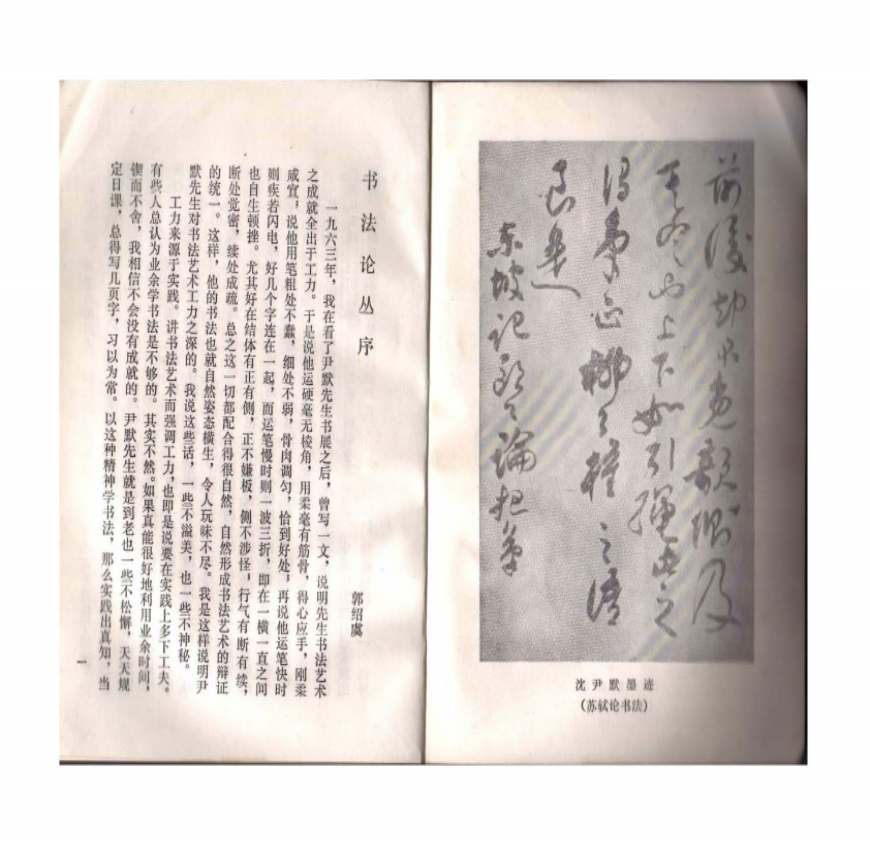 前後却不免欹側及
其定也上下如引繩此之
謂筆正柳公權之語
良是
東坡記歐公論把筆
沈尹默墨迹
(苏轼论书法)
书法论丛序
郭绍虞
一九六三年，我在看了尹默先生书展之后，曾写一文，说明先生书法艺术
之成就全出于工力。于是说他运硬毫无棱角，用柔毫有筋骨，得心应手，刚柔
咸宜；说他用笔粗处不蠢，细处不弱，骨肉调匀，恰到好处；再说他运笔快时
则疾若闪电，好几个字连在一起，而运笔慢时则一波三折，即在一横一直之间
也自生顿挫。尤其好在结体有正有侧，正不嫌板，侧不涉怪；行气有断有续，
断处觉密，续处成疏。总之这一切都配合得很自然，自然形成书法艺术的辩证
的统一。这样，他的书法也就自然姿态横生，令人玩味不尽。我是这样说明尹
默先生对书法艺术工力之深的。我说这些话，一些不溢美，也一些不神秘。
工力来源于实践。讲书法艺术而强调工力，也即是说要在实践上多下工夫。
有些人总认为业余学书法是不够的。其实不然。如果真能很好地利用业余时间，
锲而不舍，我相信不会没有成就的。尹默先生就是到老也一些不松懈，天天规
定日课，总得写几页字，习以为常。以这种精神学书法，那么实践出真知，当
一